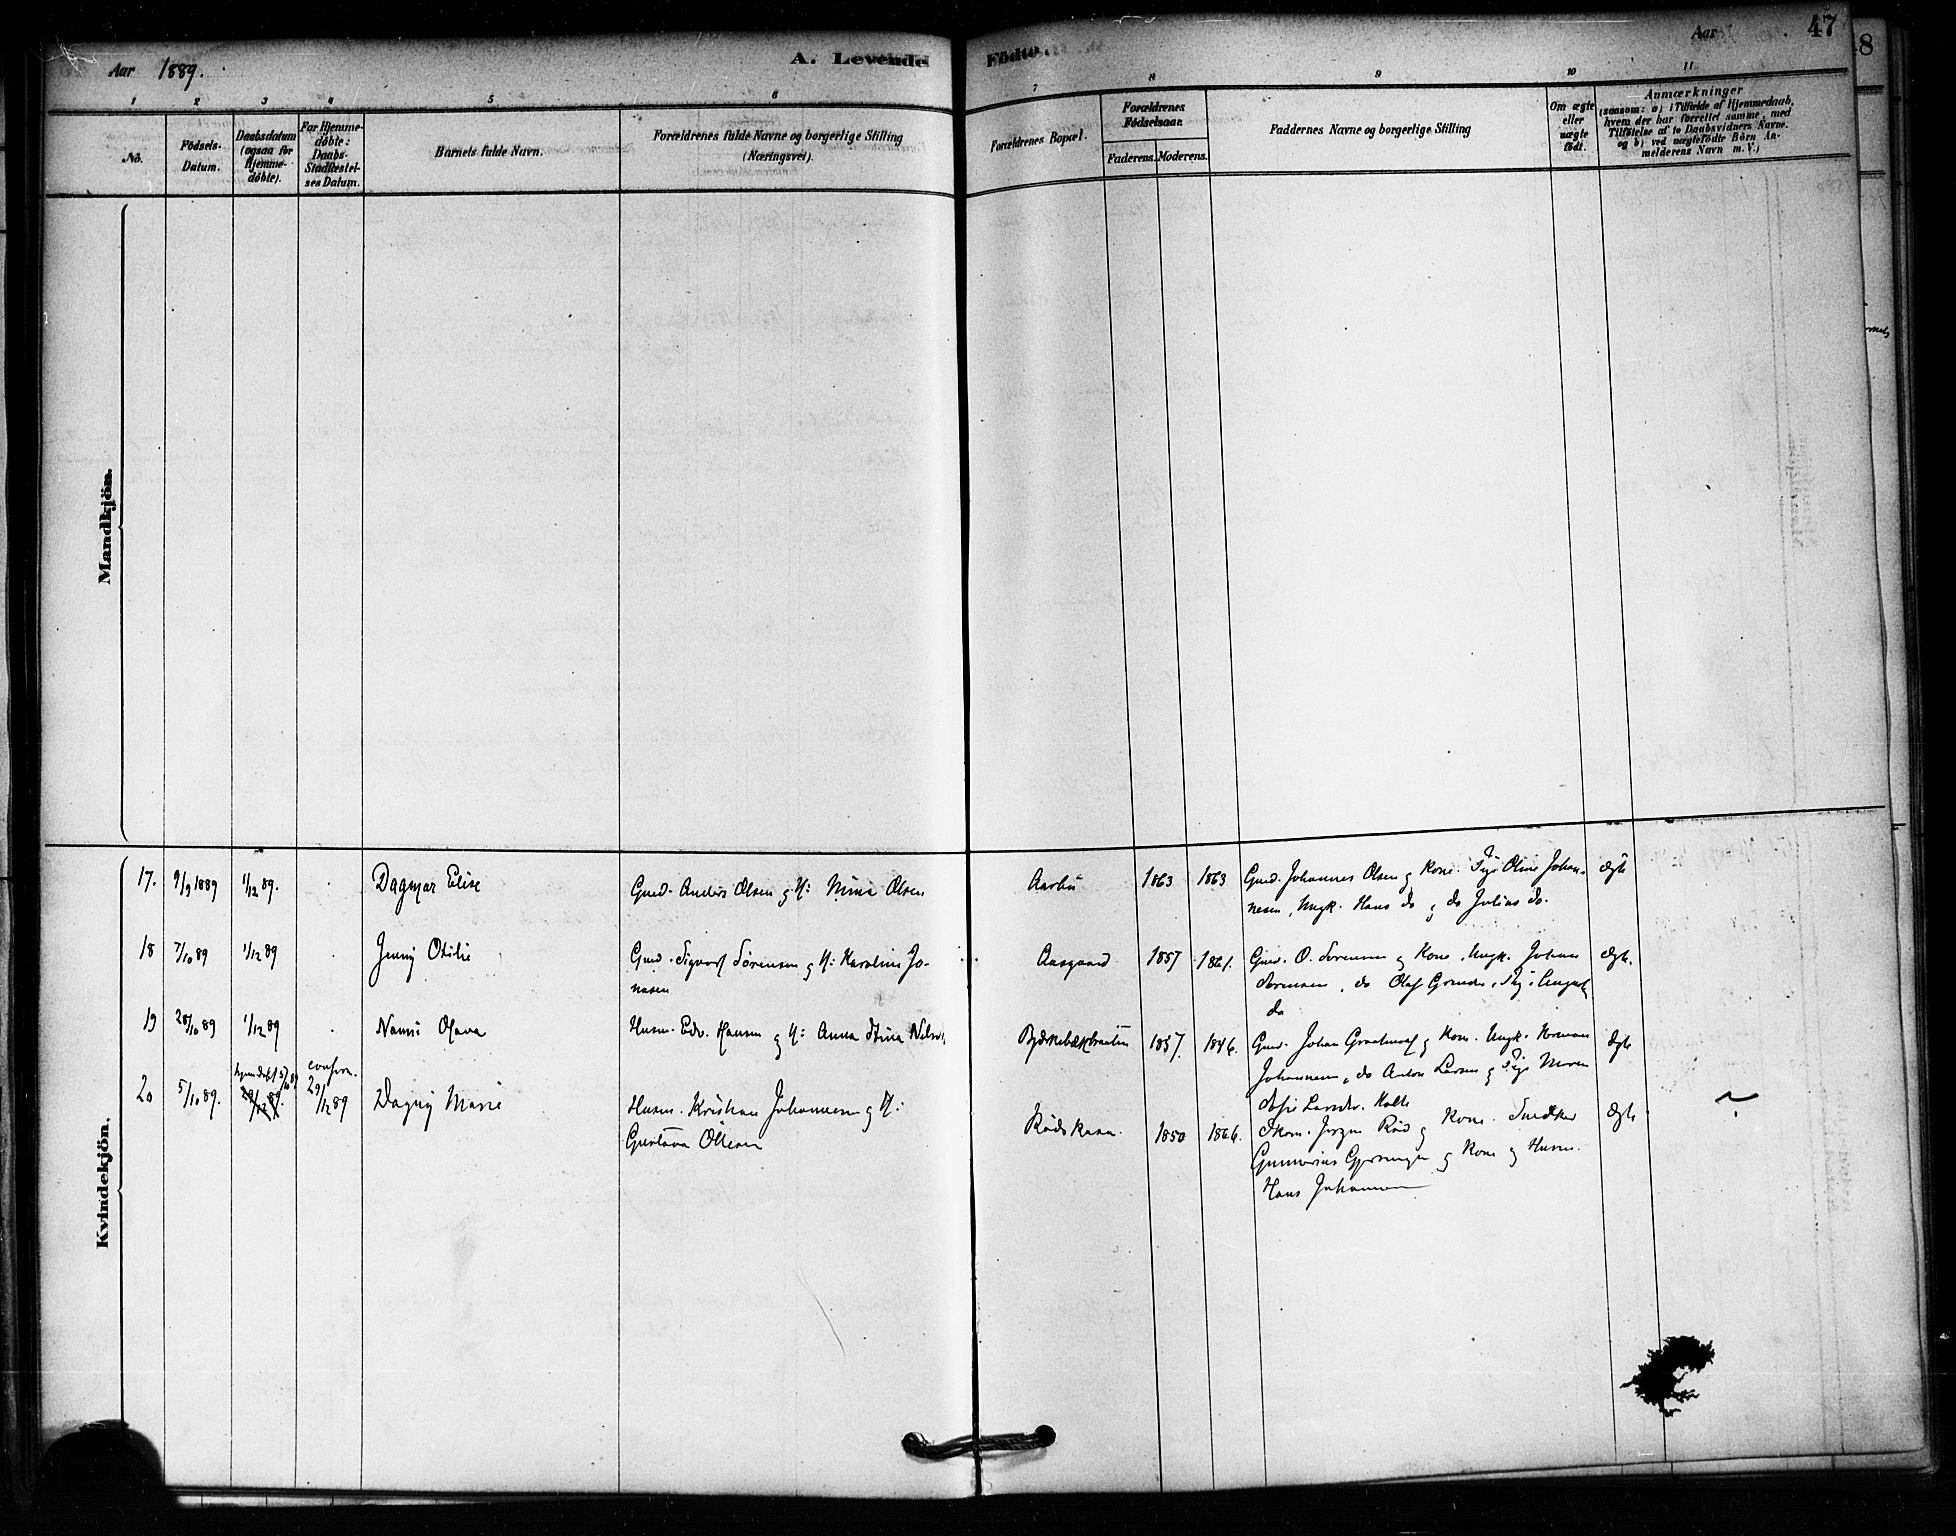 Aar 1889.
A. Levende Födte.
Aar
47
8
1 2 3 4 5 6 7 8 9 10 11
No.
Födsels-
Datum.
Daabsdatum
(ogsaa for
Hjemme-
döbte).
For Hjemme-
döbte:
Daabs-
Stadfæstel-
ses Datum.
Barnets fulde Navn.
Forældrenes fulde Navne og borgerlige Stilling
(Næringsvei).
Forældrenes Bopæl.
Forældrenes
Födselsaar.
Faderens. Moderens.
Faddernes Navne og borgerlige Stilling
Om ægte
eller
uægte
födt.
Anmærkninger
(saasom: a) i Tilfælde af Hjemmedaab,
hvem der har forrettet samme, med
Tilföielse af to Daabsvidners Navne.
og b) ved uægtefödte Börn An-
melderens Navn m. V.)
Mandkjön.
Kvindekjön.
17. 9/9 1889 1/12 89. Dagmar Elise Gmd. Anders Olsen og H: Mina Olsen Aarbu 1863 1863 Gmd. Johannes Olsen og Kone. Pige Oline Johan-
nesen, Ungk. Hans do og do Julius do.
ægte
18 7/10 89 1/12 89 Jenny Otilie Gmd. Sigvart Sörensen og H: Karoline Jo-
nasen
Aasgaard 1857 1861. Gmd. O. Sörensen og Kone, Ungk. Johan
Sörensen, do Olaf
do
ægte.
19 28/10 89 1/12 89 Nanni Olava Husm. Edv. Hansen og H: Anna Stina Nelsd. 1837. 1846. Gmd. Johan og Kone. Ungk. Herman
Johannesen, do Anton Larsen og Pige Maren
Sofie Larsdr. Kolle
ægte
20 5/10 89. hjemdöbt 5/10 89
29/12 89.
conferm.
29/12 89
Dagny Marie Husm. Kristian Johannesen og H:
Gustava Olsen
Rödskaan. 1850 1866. Skom. Jörgen Röd og Kone. Snedker
Gunerius og Kone og Husm.
Hans Johannesen
ægte